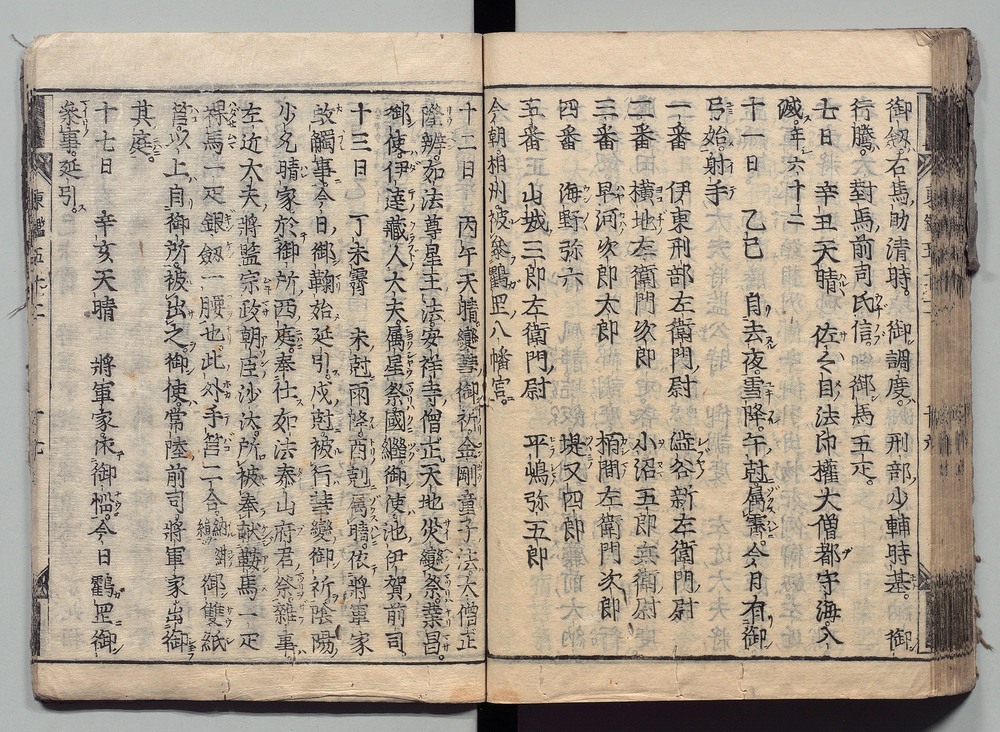 御劔。右馬助清時。 御調度。 刑部少輔時基。 御
行騰。對馬前司氏信。 御馬五疋。
七日 辛丑天晴 佐々目法印權大僧都守海入
滅。年六十二
十一日。 乙巳 自去夜。雪降。午尅属霽。今月有御
弓始射手
一番 伊東刑部左衛門尉 澁谷新左衛門尉
二番 横地左衛門次郎 小沼五郎兵衛尉
三番 早河次郎太郎 栢間左衛門次郎
四番 海野弥六 堤又四郎
五番 山城三郎左衛門尉 平嶋弥五郎
今朝。相州被参鶴岡八幡宮。
十二日 丙午天晴。變異御祈。金剛童子法大僧正
隆辨。如法尊星王法安祥寺僧正天地災變祭。業昌。
御使。伊達蔵人大夫。属星祭國繼御使。池伊賀前司。
十三日 丁未霽 未尅雨降。酉尅属晴。依將軍家
故觸事。今日御鞠始延引。戌尅被行變御祈陰陽
少允晴家於御所西庭奉仕如法泰山府君祭雜事。
左近大夫將監宗政朝臣沙汰所被奉献鞍馬一疋
裸馬一疋銀劔一腰也。此外手筥二合。御雙紙
筥。以上自御所。被出之。御使。常陸前司將軍家出御
其庭。
十七日 辛亥天晴 將軍家御惱。今日鶴岡御
参事。延引。
東鑑五十二